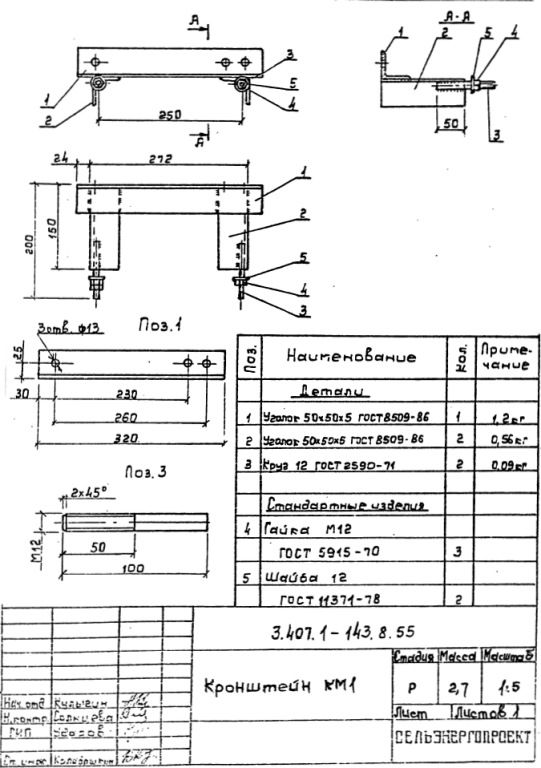 А
А-А
1
2
5
4
3
1
2
5
4
250
А
50
3
24
272
1
2
150
200
5
4
3
3отв. ф13
Поз.1
25
30
230
260
320
Поз.3
2х45°
М12
50
100
Поз. Наименование Кол. Примечание
Детали
1 Уголок 50х50х5 ГОСТ 8509-86 1 1,2кг
2 Уголок 50х50х5 ГОСТ 8509-86 2 0,56кг
3 Круг 12 ГОСТ 2590-71 2 0,09кг
Стандартные изделия
4 Гайка М12
ГОСТ 5915-70 3
5 Шайба 12
ГОСТ 11371-78 2
3.407.1-143.8.55
Кронштейн КМ1
Стадия Масса Масштаб
Р 2,7 1:5
Лист Листов 1
СЕЛЬЭНЕРГОПРОЕКТ
Нач.отд Кулыгин
Н.контр. Солнцева
ГИП
Ст. инж.